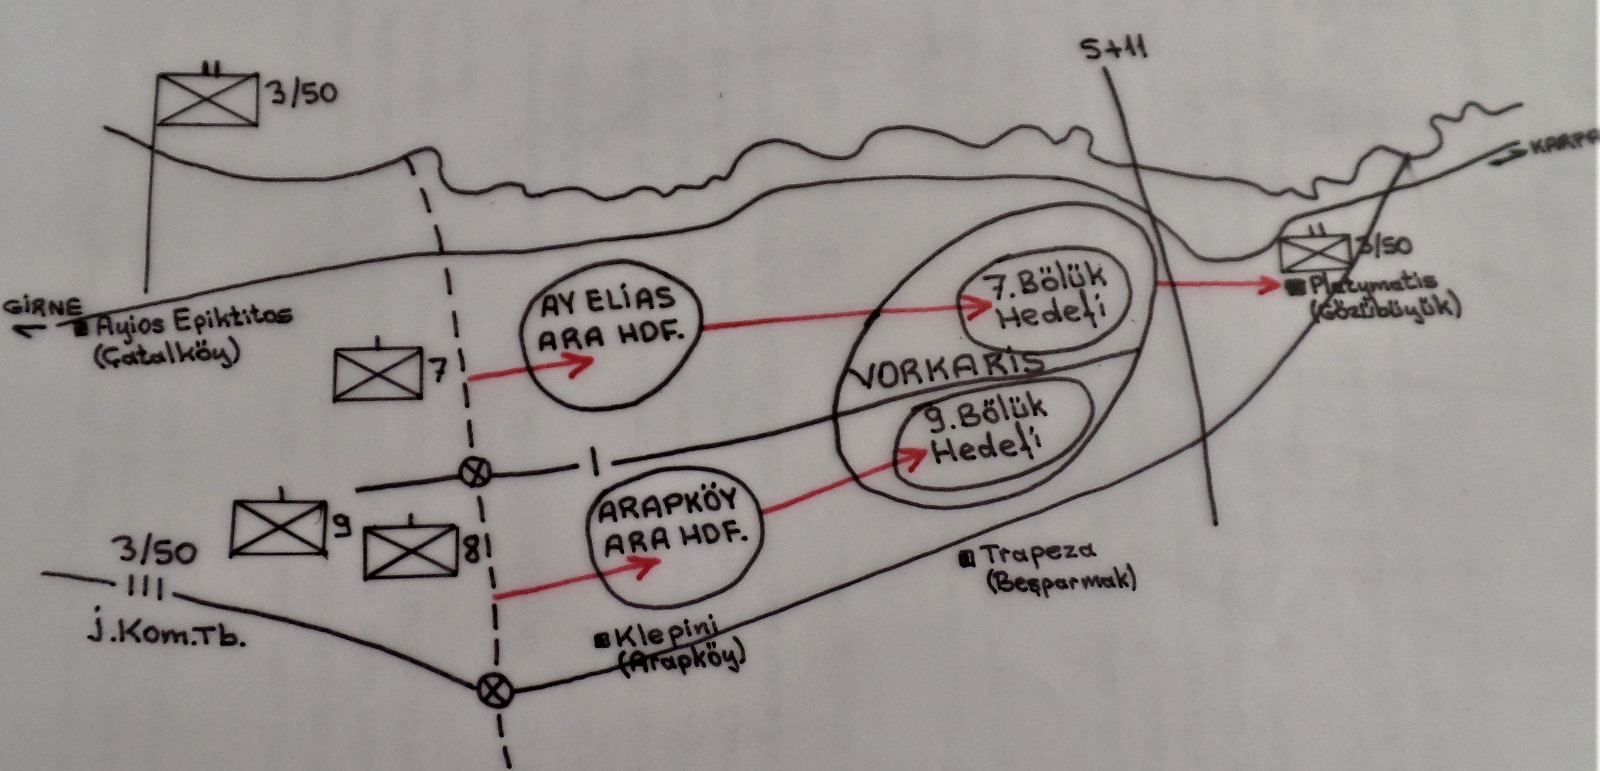 S+11
3/50
KARPA
3/50
GİRNE
Ayios Epiktitos
(Çatalköy)
AY ELİAS
ARA HDF.
7.Bölük
Hedefi
Platymatis
(Gözübüyük)
7
VORKARİS
9.Bölük
Hedefi
ARAPKÖY
ARA HDF.
9
8
3/50
J.Kom.Tb.
Trapeza
(Beşparmak)
Klepini
(Arapköy)